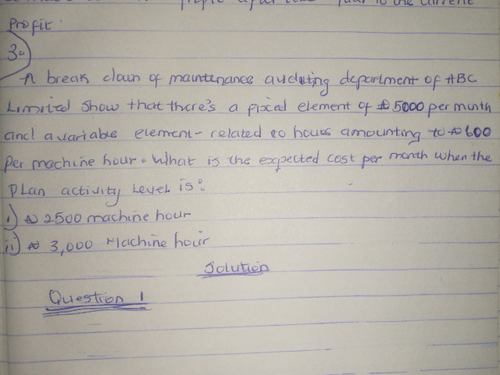 profit after
to the current
Profit:
3.
A break down of maintenance auditing department of ABC
Limited show that there's a fixed element of ₦5000 per month
and a variable element-related to hours amounting to ₦600
Per machine hour. What is the expected cost per month when the
Plan activity Level is:
i) ₦ 2500 machine hour
ii) ₦ 3,000 Machine hour
Solution
Question 1